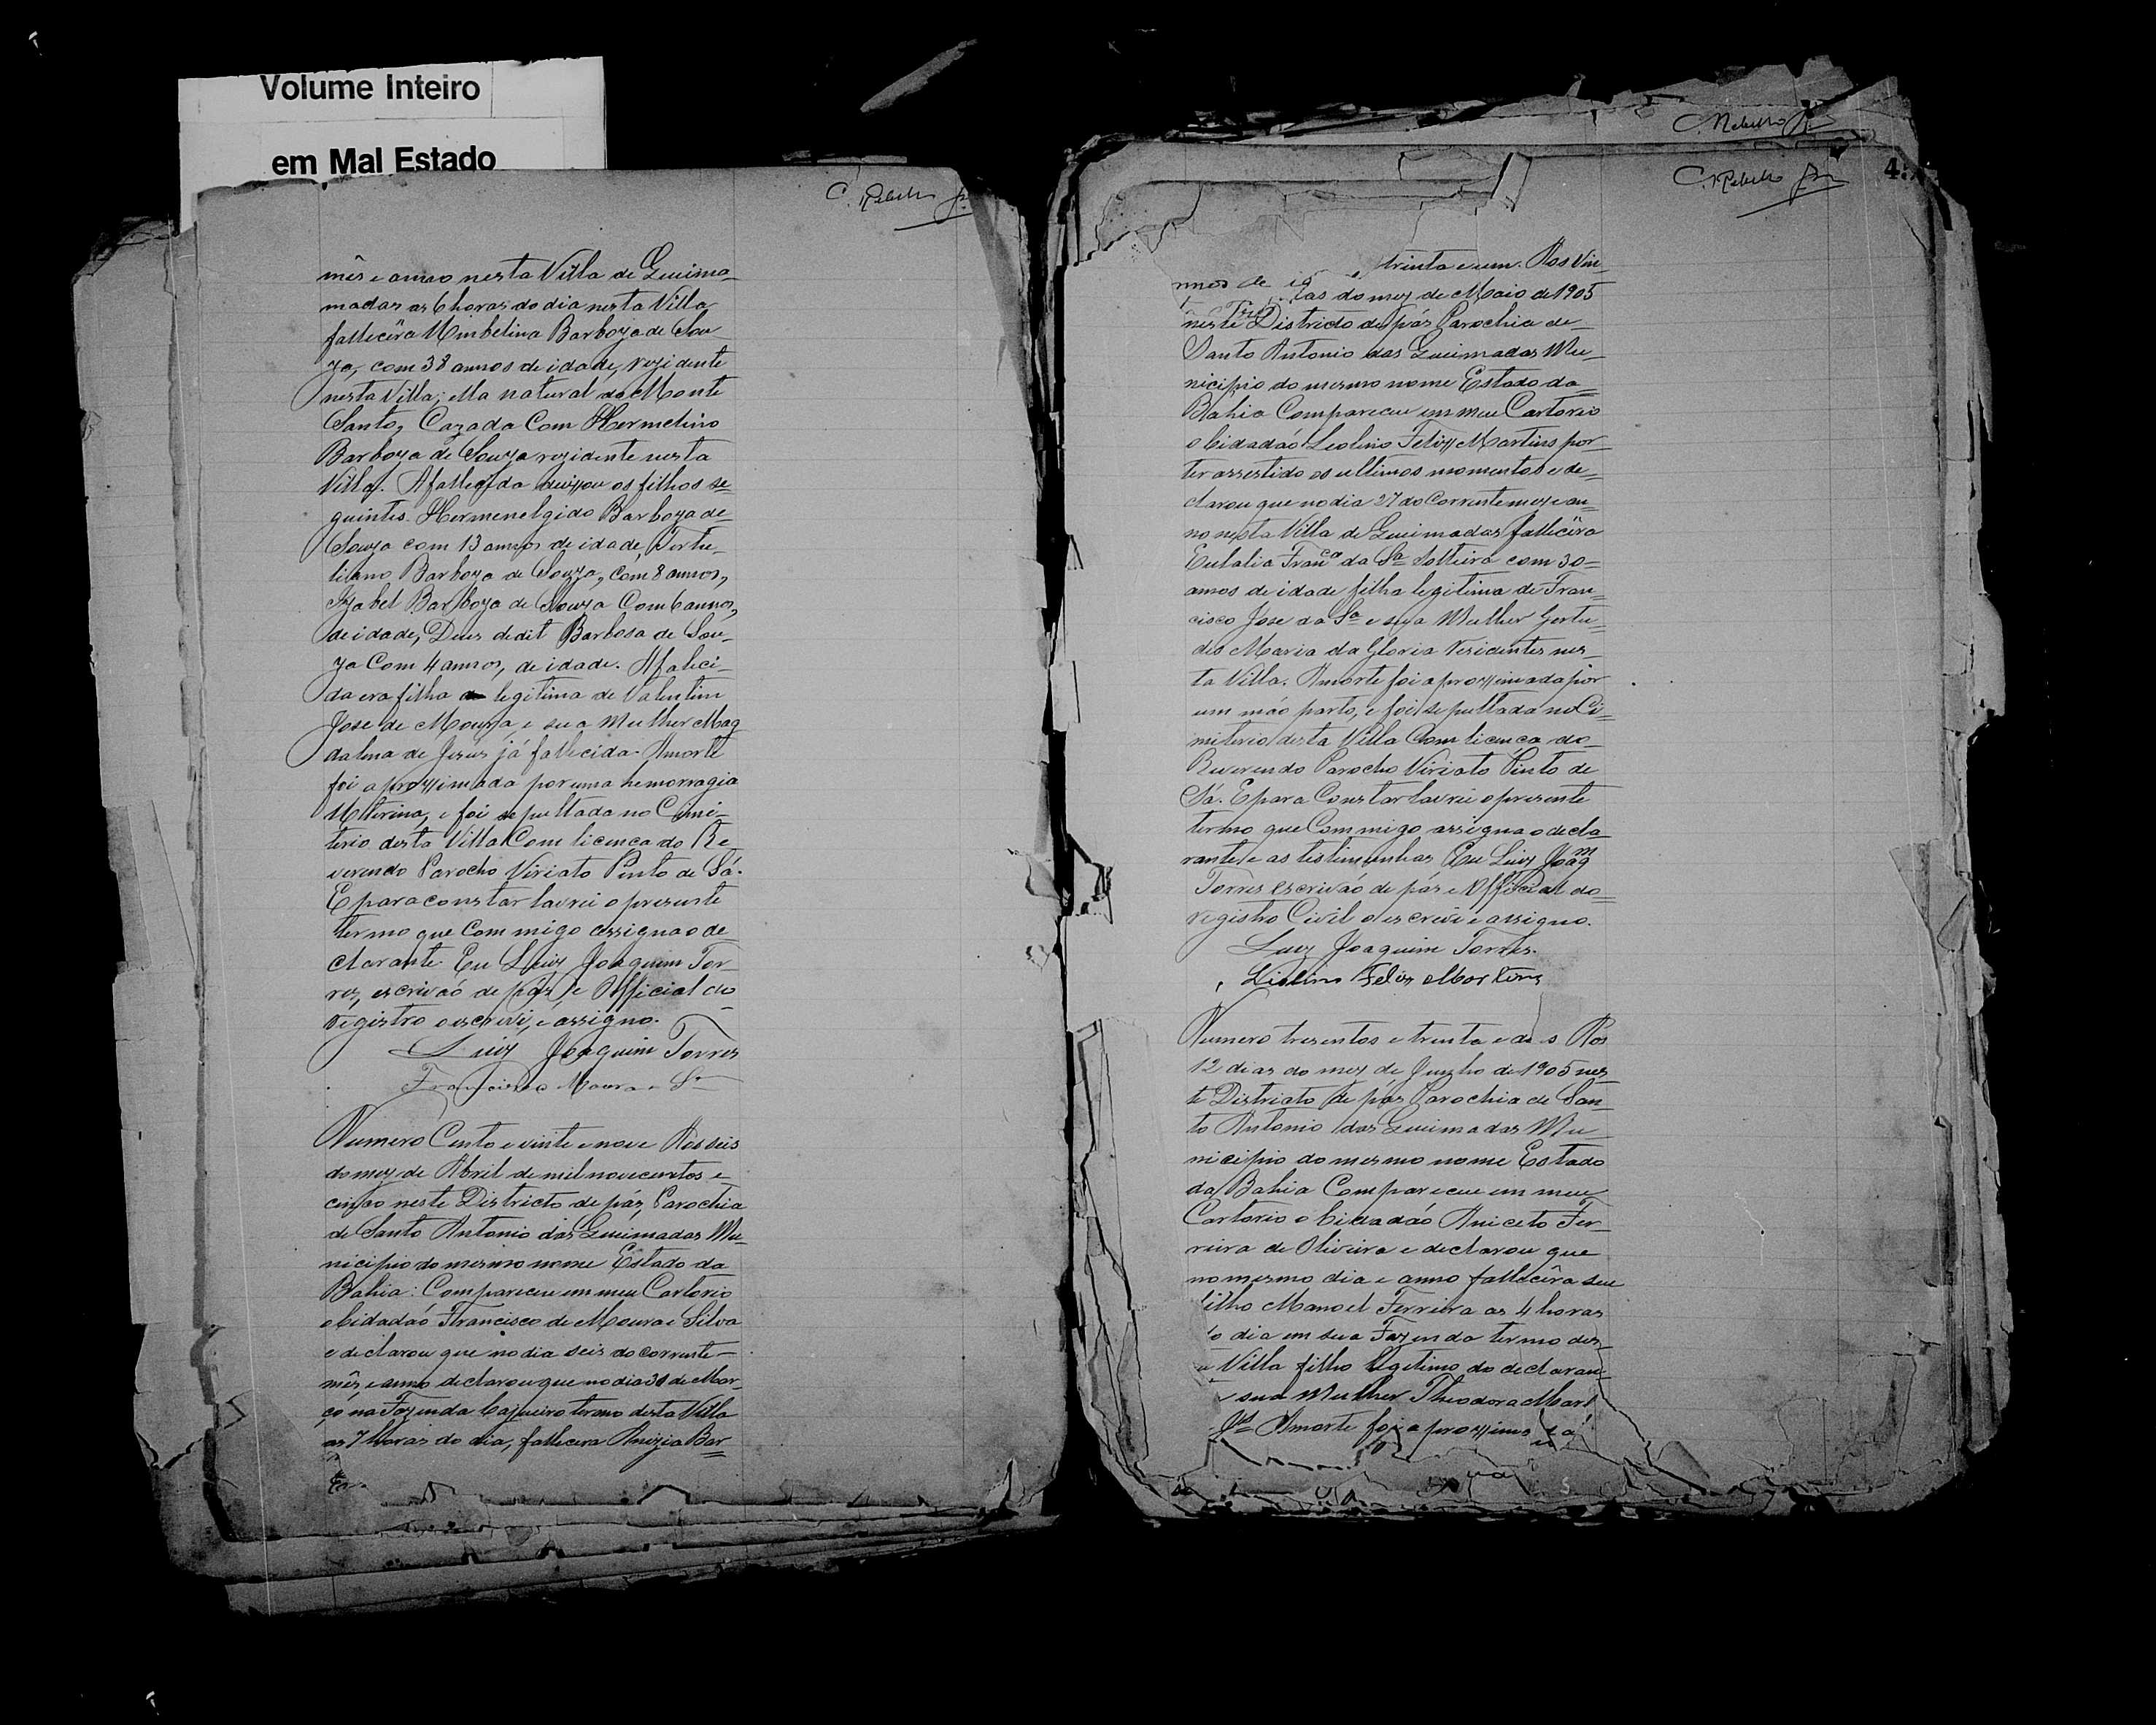 Volume Inteiro
em Mal Estado
C. Rebello Jr
mês e anno nesta Villa de Queima-
madas as 6 horas do dia nesta Villa
fallecêra Umbelina Barboza de Sou
za, com 38 annos de idade, rezidente
nesta Villa; ella natural do Monte
Santo, Cazada Com Hermelino
Barboza de Souza rezidente nesta
Villa. A fallecida deixou os filhos se=
guintes. Hermenelgido Barboza de=
Souza com 13 annos de idade, Tertu=
liano Barboza de Souza, com 8 annos,
Izabel Barboza de Souza Com 6 annos,
de idade, Deus dedit Barbosa de Sou-
za Com 4 annos, de idade. A faleci-
da era filha legitima de Valentim
Jose de Moura, e sua Mulher Mag
dalena de Jesus já fallecida. A morte
foi aproximada por uma hemorragia
Uterina, e foi sepultada no Cimi-
terio desta Villa Com licença do Re
verendo Parocho Viriato Pinto de Sá.
E para constar lavrei o presente
termo que Commigo assigna o de
clarante. Eu Luiz Joaquim Tor-
res, escrivaó de páz, e Official do
registro o escrevi, e assigno.
Luiz Joaquim Torres
Francisco Moura e Sa
Numero Cento e vinte e nove Aos seis
do mez de Abril de mil novecentos e
cinco neste Districto de páz, Parochia
de Santo Antonio das Queimadas Mu-
nicipio do mesmo nome Estado da
Bahia: Compareceu em meu Cartorio
o Cidadaó Francisco de Moura e Silva
e declarou que no dia seis do corrente-
mês e anno declarou que no dia 30 de Mar-
ço na Fazenda Cajueiro termo desta Villa
as 7 horas do dia, fallecera Anizia Bar=
C. Rebello Jr
C. Rebello Jr
4
trinta e um. Aos Vin-
do mez de Maio de 1905
neste Districto de páz Parochia de-
Santo Antonio das Queimadas Mu-
nicipio do mesmo nome Estado da=
Bahia Compareceu em meu Cartorio
o Cidadaó Leolino Felix Martins por-
ter assestido os ultimos momentos e de=
clarou que no dia 27 do Corrente mez e an-
no nesta Villa de Queimadas fallecêra
Eulalia Franca da Sa Solteira com 30=
annos de idade filha legitima de Fran=
cisco Jose da Sa e sua Mulher Gertu=
des Maria da Gloria rezidentes nes-
ta Villa. A morte foi aproximada por
um máo parto, e foi sepultada no Ci-
miterio desta Villa Com licença do-
Reverendo Parocho Viriato Pinto de
Sá. E para Constar lavrei o presente
termo que Commigo assigna o decla-
rante e as testimunhas Eu Luiz Joaqm
Torres escrivaó de páz e Official do=
registro Civil o escrevi e assigno.
Luiz Joaquim Torres.
Liolino Felix Martins
Numero tresentos e trinta e do s Aos
12 dias do mez de Junho de 1905 nes
te Districto de páz Parochia de San-
to Antonio das Queimadas Mu-
nicipio do mesmo nome Estado
da Bahia Compareceu em meu
Cartorio o Cidadaó Aniceto Fer-
reira de Oliveira e declarou que
no mesmo dia e anno fallecêra seu
filho Manoel Ferreira as 4 horas
do dia em sua Fazenda termo des-
ta Villa filho legitimo do declaran-
e sua Mulher Theodora Mari
A morte foi aproxima